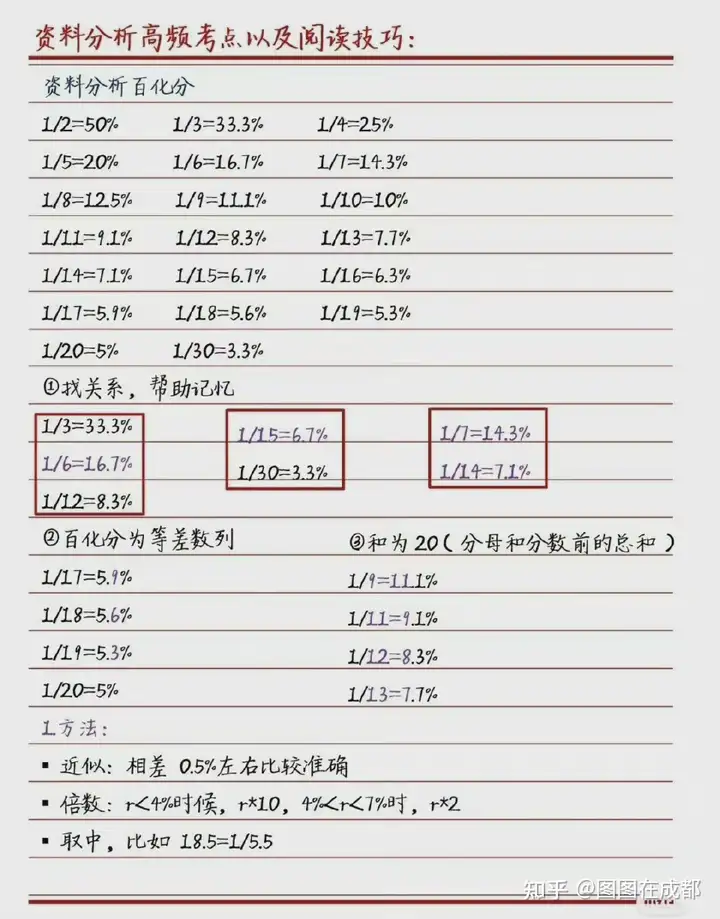 资料分析高频考点以及阅读技巧:
资料分析百化分
1/2=50% 1/3=33.3% 1/4=25%
1/5=20% 1/6=16.7% 1/7=14.3%
1/8=12.5% 1/9=11.1% 1/10=10%
1/11=9.1% 1/12=8.3% 1/13=7.7%
1/14=7.1% 1/15=6.7% 1/16=6.3%
1/17=5.9% 1/18=5.6% 1/19=5.3%
1/20=5% 1/30=3.3%
①找关系，帮助记忆
1/3=33.3%
1/6=16.7%
1/12=8.3%
1/15=6.7%
1/30=3.3%
1/7=14.3%
1/14=7.1%
②百化分为等差数列
1/17=5.9%
1/18=5.6%
1/19=5.3%
1/20=5%
③和为20(分母和分数前的总和)
1/9=11.1%
1/11=9.1%
1/12=8.3%
1/13=7.7%
1.方法:
▪ 近似: 相差 0.5%左右比较准确
▪ 倍数: r<4%时候，r*10，4%<r<7%时，r*2
▪ 取中，比如 18.5=1/5.5
知乎 @图图在成都